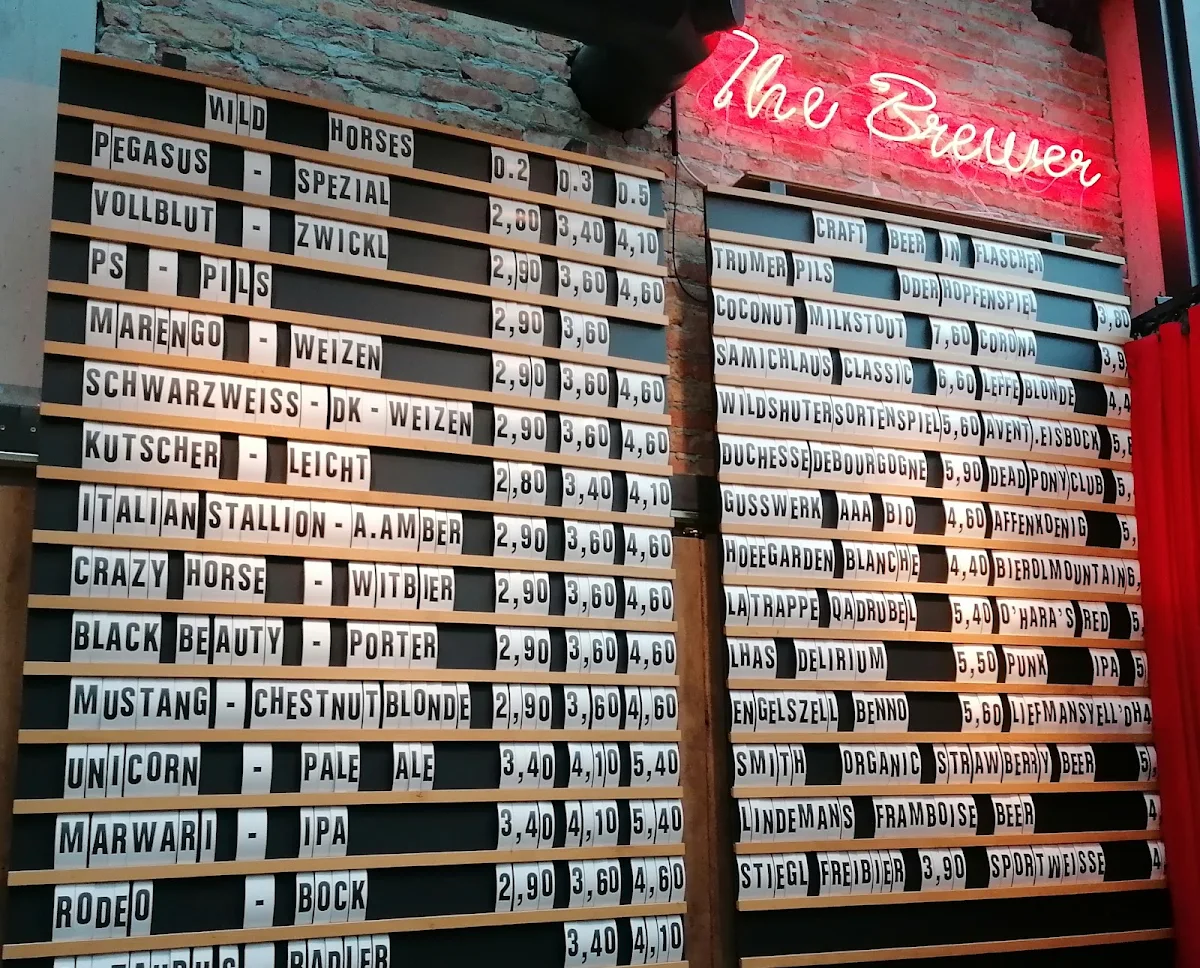 The Brewer
WILD HORSES 0.2 0.3 0.5
PEGASUS - SPEZIAL 2,80 3,40 4,10
VOLLBLUT - ZWICKL 2,90 3,60 4,60
PS - PILS 2,90 3,60
MARENGO - WEIZEN 2,90 3,60 4,60
SCHWARZWEISS - DK - WEIZEN 2,90 3,60 4,60
KUTSCHER - LEICHT 2,80 3,40 4,10
ITALIAN STALLION - A.AMBER 2,90 3,60 4,60
CRAZY HORSE - WITBIER 2,90 3,60 4,60
BLACK BEAUTY - PORTER 2,90 3,60 4,60
MUSTANG - CHESTNUT BLONDE 2,90 3,60 4,60
UNICORN - PALE ALE 3,40 4,10 5,40
MARWARI - IPA 3,40 4,10 5,40
RODEO - BOCK 2,90 3,60 4,60
RADLER 3,40 4,10
CRAFT BEER IN FLASCHEN
TRUMER PILS ODER HOPFENSPIEL 3,80
COCONUT MILKSTOUT 7,60 CORONA 3,9
SAMICHLAUS CLASSIC 6,60 LEFFE BLONDE 4,4
WILDSHUTER SORTENSPIEL 5,60 AVENT.EISBOCK 5,
DUCHESSE DEBOURGOGNE 5,90 DEAD PONY CLUB 5,
GUSSWERK AAA BIO 4,60 AFFENKOENIG 5,
HOEEGARDEN BLANCHE 4,40 BIEROLMOUNTAIN 6,
LATRAPPE QADRUBEL 5,40 O'HARA'S RED 5
LHAS DELIRIUM 5,50 PUNK IPA 5
ENGELSZELL BENNO 5,60 LIEFMANSYELL'OH 4
SMITH ORGANIC STRAWBERRY BEER 5,
LINDEMANS FRAMBOISE BEER 4,
STIEGL FREIBIER 3,90 SPORTWEISSE 4